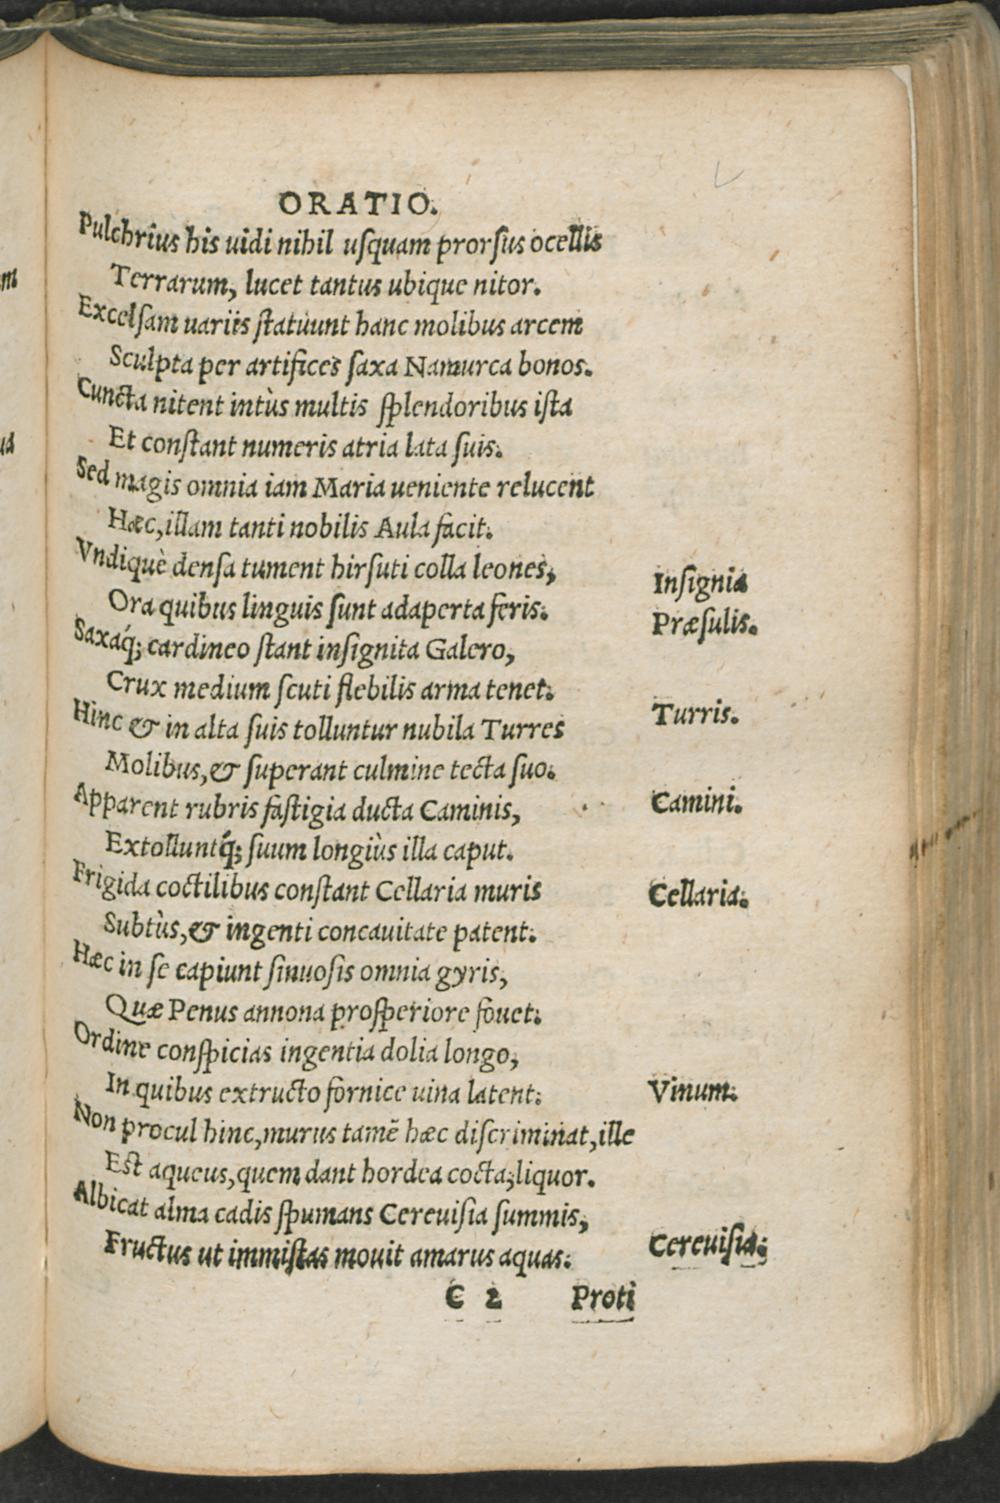 ORATIO.
Pulchrius his uidi nihil usquam prorsus ocellis
Terrarum, lucet tantus ubique nitor.
Excelsam uariis statuunt hanc molibus arcem
Sculpta per artifices saxa Namurca bonos.
Cuncta nitent intùs multis splendoribus ista
Et constant numeris atria lata suis.
Sed magis omnia iam Maria ueniente relucent
Hæc, illam tanti nobilis Aula facit.
Vndiquè densa tument hirsuti colla leones,
Insignia
Ora quibus linguis sunt adaperta feris.
Præsulis.
Saxaq́; cardineo stant insignita Galero,
Crux medium scuti flebilis arma tenet.
Hinc & in alta suis tolluntur nubila Turres
Turris.
Molibus, & superant culmine tecta suo.
Apparent rubris fastigia ducta Caminis,
Camini.
Extolluntq́; suum longiùs illa caput.
Frigida coctilibus constant Cellaria muris
Cellaria.
Subtùs, & ingenti concauitate patent.
Hæc in se capiunt sinuosis omnia gyris,
Quæ Penus annona prosperiore fouet.
Ordine conspicias ingentia dolia longo,
In quibus extructo fornice uina latent.
Vinum.
Non procul hinc, murus tamē hæc discriminat, ille
Est aqueus, quem dant hordea cocta, liquor.
Albicat alma cadis spumans Cereuisia summis,
Cereuisia.
Fructus ut immistas mouit amarus aquas.
C 2 Proti